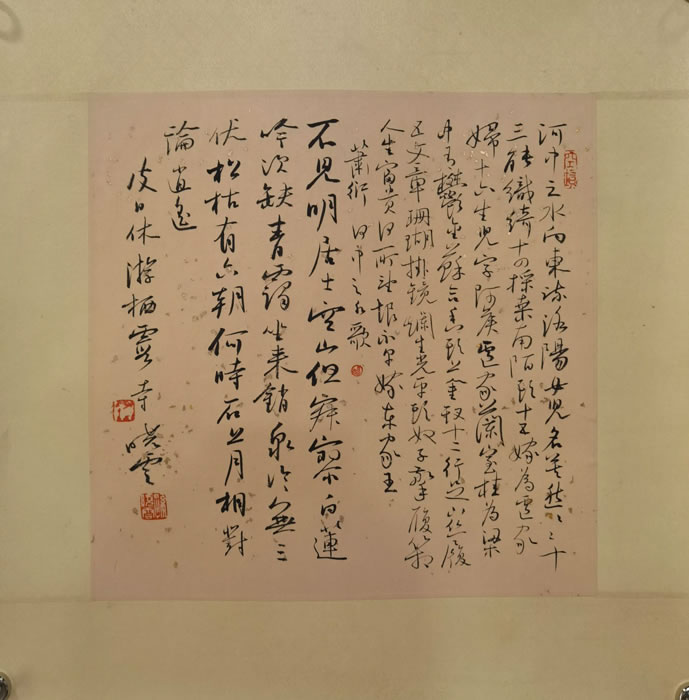 河中之水向東流洛陽女兒名莫愁〻〻十
三能織綺十四採桑南陌頭十五嫁為盧家
婦十六生兒字阿侯盧家蘭室桂為梁
中有鬱金蘇合香頭上金釵十二行足下絲履
五文章珊瑚挂鏡爛生光平頭奴子擎履箱
人生富貴何所望恨不早嫁東家王
蕭衍 河中之水歌
不見明居士空山但寂寥白蓮
吟次缺青靄坐來銷泉冷無三
伏松枯有六朝何時石上月相對
論逍遙
皮日休游栖霞寺 曉雲